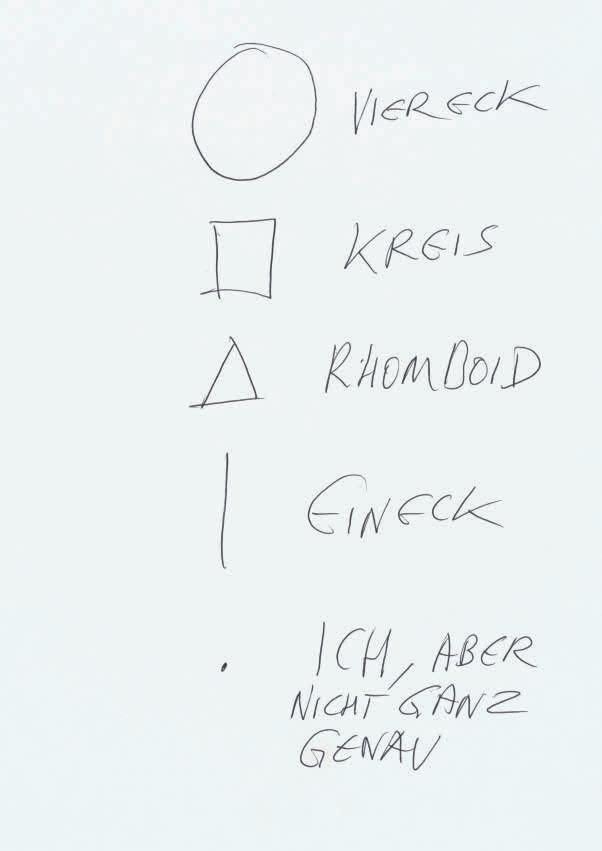 VIERECK
KREIS
RHOMBOID
EINECK
ICH, ABER
NICHT GANZ
GENAU